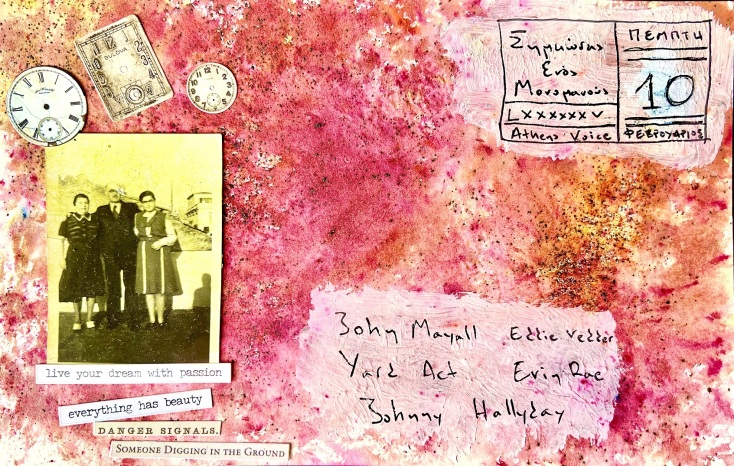 BULOVA
Σημειώσεις
Ενός
Μονομανούς
LXXXXXXV
Athens Voice
ΠΕΜΠΤΗ
10
ΦΕΒΡΟΥΑΡΙΟΣ
John Mayall Eddie Vedder
Yard Act Erin Rae
Johnny Hallyday
live your dream with passion
everything has beauty
DANGER SIGNALS.
SOMEONE DIGGING IN THE GROUND